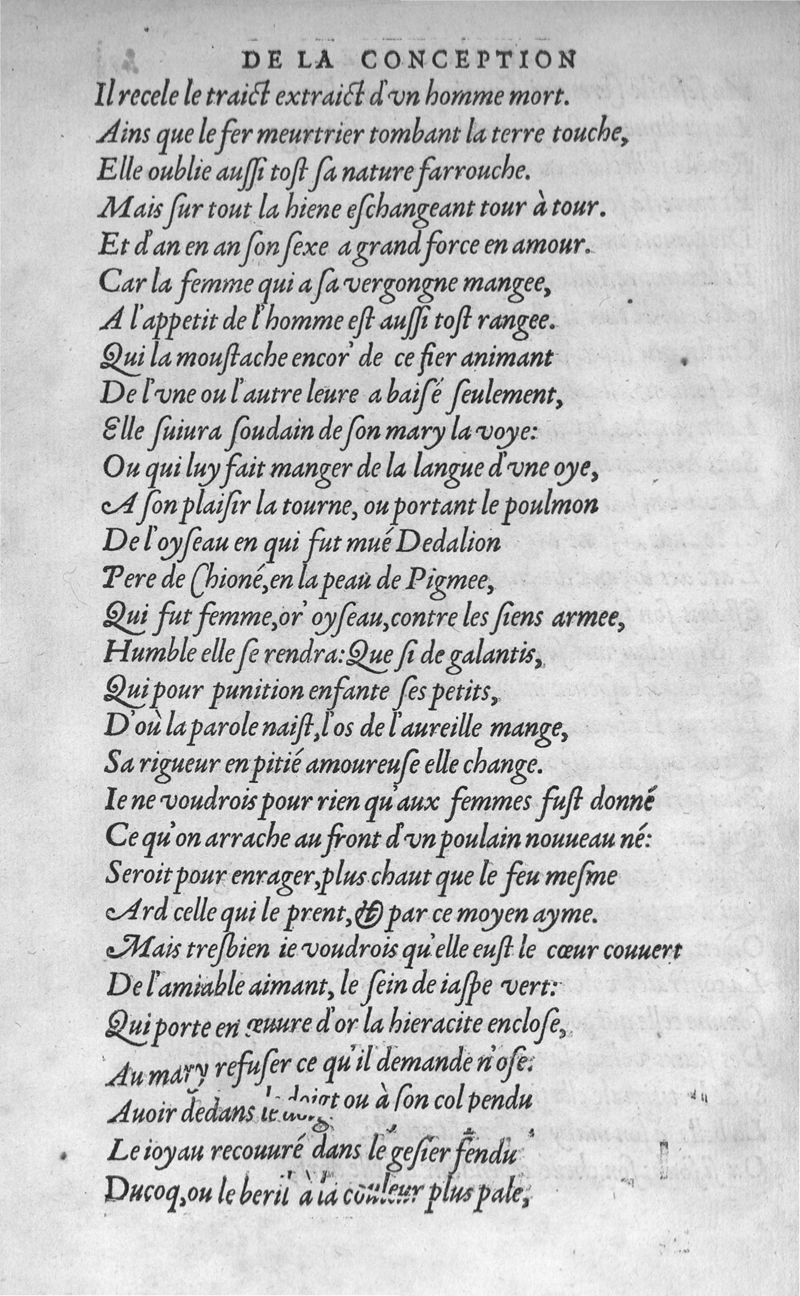 DE LA CONCEPTION
Il recele le traict extraict d'vn homme mort.
Ains que le fer meurtrier tombant la terre touche,
Elle oublie auſſi toſt ſa nature farrouche.
Mais ſur tout la hiene eſchangeant tour à tour.
Et d'an en an ſon ſexe a grand force en amour.
Car la femme qui a ſa vergongne mangee,
A l'appetit de l'homme eſt auſſi toſt rangee.
Qui la mouſtache encor' de ce fier animant
De l'vne ou l'autre leure a baiſé ſeulement,
Elle ſuiura ſoudain de ſon mary la voye:
Ou qui luy fait manger de la langue d'vne oye,
A ſon plaiſir la tourne, ou portant le poulmon
De l'oyſeau en qui fut mué Dedalion
Pere de Chioné, en la peau de Pigmee,
Qui fut femme, or' oyſeau, contre les ſiens armee,
Humble elle ſe rendra: Que ſi de galantis,
Qui pour punition enfante ſes petits,
D'où la parole naiſt, l'os de l'aureille mange,
Sa rigueur en pitié amoureuſe elle change.
Ie ne voudrois pour rien qu'aux femmes fuſt donné
Ce qu'on arrache au front d'vn poulain nouueau né:
Seroit pour enrager, plus chaut que le feu meſme
Ard celle qui le prent, & par ce moyen ayme.
Mais treſbien ie voudrois qu'elle euſt le cœur couuert
De l'amiable aimant, le ſein de iaſpe vert:
Qui porte en œuure d'or la hieracite encloſe,
Au mary refuſer ce qu'il demande n'oſe.
Auoir dedans le doigt ou à ſon col pendu
Le ioyau recouuré dans le geſier fendu
Du coq, ou le beril à la couleur plus pale,